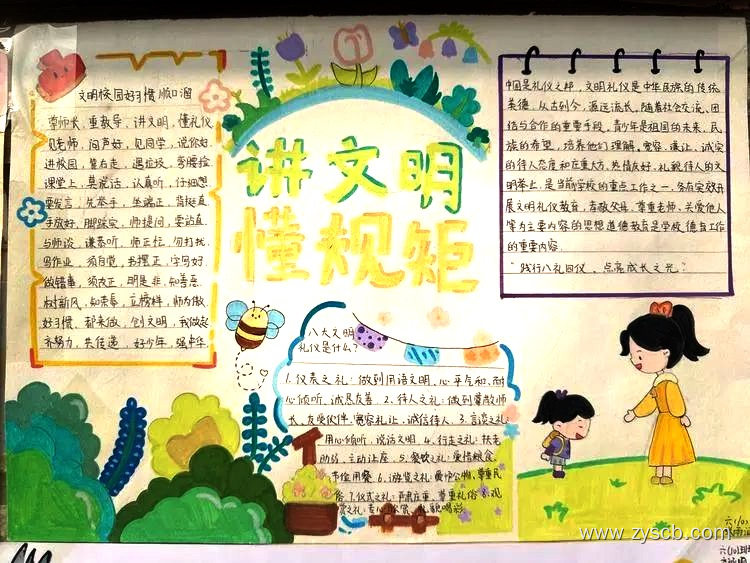 讲文明
懂规矩
文明校园好习惯顺口溜
尊师长,重教导,讲文明,懂礼仪
见老师,问声好,见同学,说你好
进校园,靠右走,遇垃圾,弯腰捡
课堂上,莫说话,认真听,仔细想
要发言,先举手,坐端正,背挺直
手放好,脚踏实,师提问,要站直
与师谈,谦恭听,师正忙,勿打扰
写作业,须自觉,书摆正,字写好
做错事,须改正,明是非,知善恶
树新风,知荣辱,立榜样,师为傲
好习惯,都来做,创文明,我做起
齐努力,共传递,好少年,强中华
中国是礼仪之邦,文明礼仪是中华民族的传统
美德,从古到今,源远流长,随着社会交流、团
结与合作的重要手段,青少年是祖国的未来,民
族的希望,培养他们理解、宽容、谦让、诚实
的待人态度和庄重大方、热情友好、礼貌待人的文
明举止,是当前学校的重点工作之一,务有实效开
展文明礼仪教育,孝敬父母、尊重老师、关爱他人
等为主要内容的思想道德教育是学校德育工作
的重要内容.
“践行八礼四仪,点亮成长之光”
八大文明
礼仪是什么?
1.仪表之礼:做到用语文明、心平气和、耐
心倾听、诚恳友善 2.待人之礼:做到尊敬师
长、友爱伙伴、宽容礼让、诚信待人 3.言谈之礼:
用心倾听,说话文明 4.行走之礼:扶老
助弱,主动让座 5.餐饮之礼:爱惜粮食
用餐 6.游览之礼:爱护公物、尊重民
俗 7.仪式之礼:肃庄重、尊重礼俗 8.观
赏之礼:专心欣赏、礼貌喝彩
www.zyscb.com